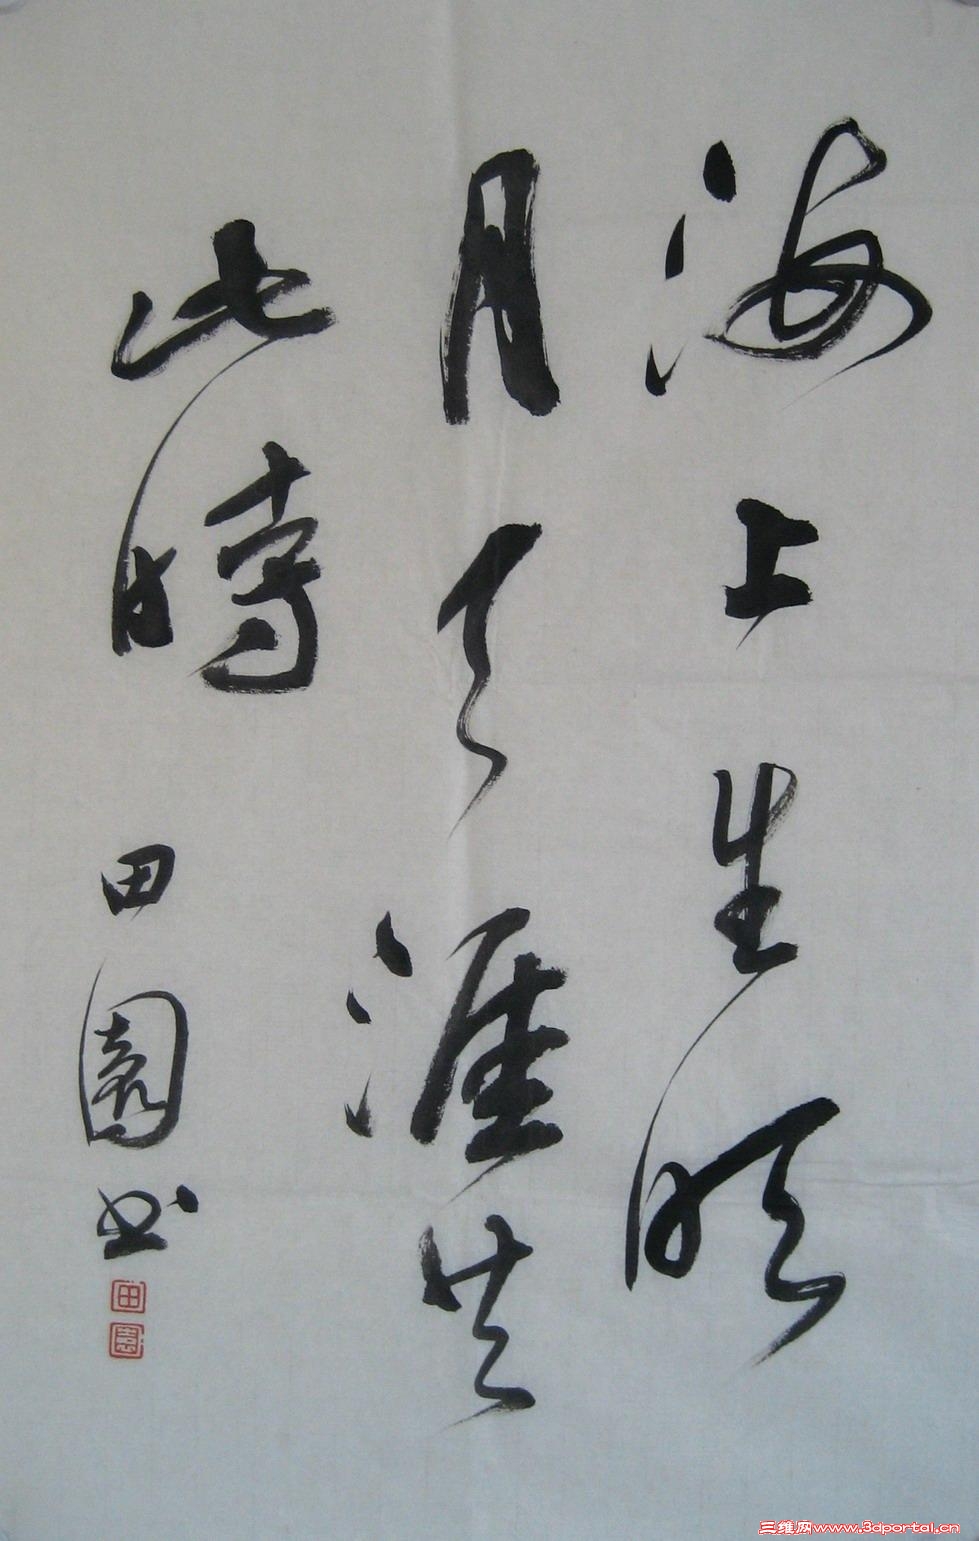 海上生明
月天涯共
此時
田園书
田
園
三维网www.3dportal.cn